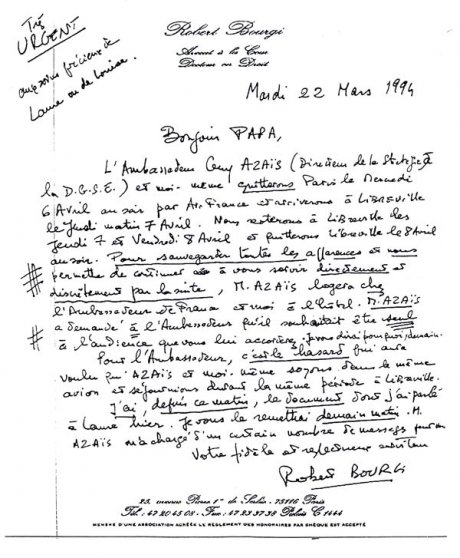 Très
URGENT
aux soins précieux de
Laure ou de Louise.
Robert Bourgi
Avocat à la Cour
Docteur en Droit
Mardi 22 Mars 1994
Bonjour PAPA,
L'Ambassadeur Cury AZAÏS (Directeur de la Stratégie à
la D.G.S.E.) et moi-même quitterons Paris le Mercredi
6 Avril au soir par Air France et arriverons à LIBREVILLE
le Jeudi matin 7 Avril. Nous resterons à Libreville les
Jeudi 7 et Vendredi 8 Avril et quitterons Libreville le 8 Avril
au soir. Pour sauvegarder toutes les apparences et nous
permettre de continuer à vous servir directement et
discrètement par la suite, M. AZAÏS logera chez
l'Ambassadeur de France et moi à l'hôtel. M. AZAÏS
a demandé à l'Ambassadeur qu'il souhaitait être seul
à l'audience que vous lui accorderez. Je vous dirai pourquoi, demain.
Pour l'Ambassadeur, c'est le hasard qui aura
voulu qu'AZAÏS et moi-même soyons dans le même
avion et séjournions durant la même période à Libreville.
J'ai, depuis ce matin, le document dont j'ai parlé
à Laure hier. Je vous le remettrai demain matin. M.
AZAÏS m'a chargé d'un certain nombre de messages pour vous
Votre fidèle et respectueux
Robert BOURGI
Paris
Tél. : 47 20 45 08 - Fax : 47 23 37 38 Palais C 1444
MEMBRE D'UNE ASSOCIATION AGRÉÉE LE RÈGLEMENT DES HONORAIRES PAR CHÈQUE EST ACCEPTÉ